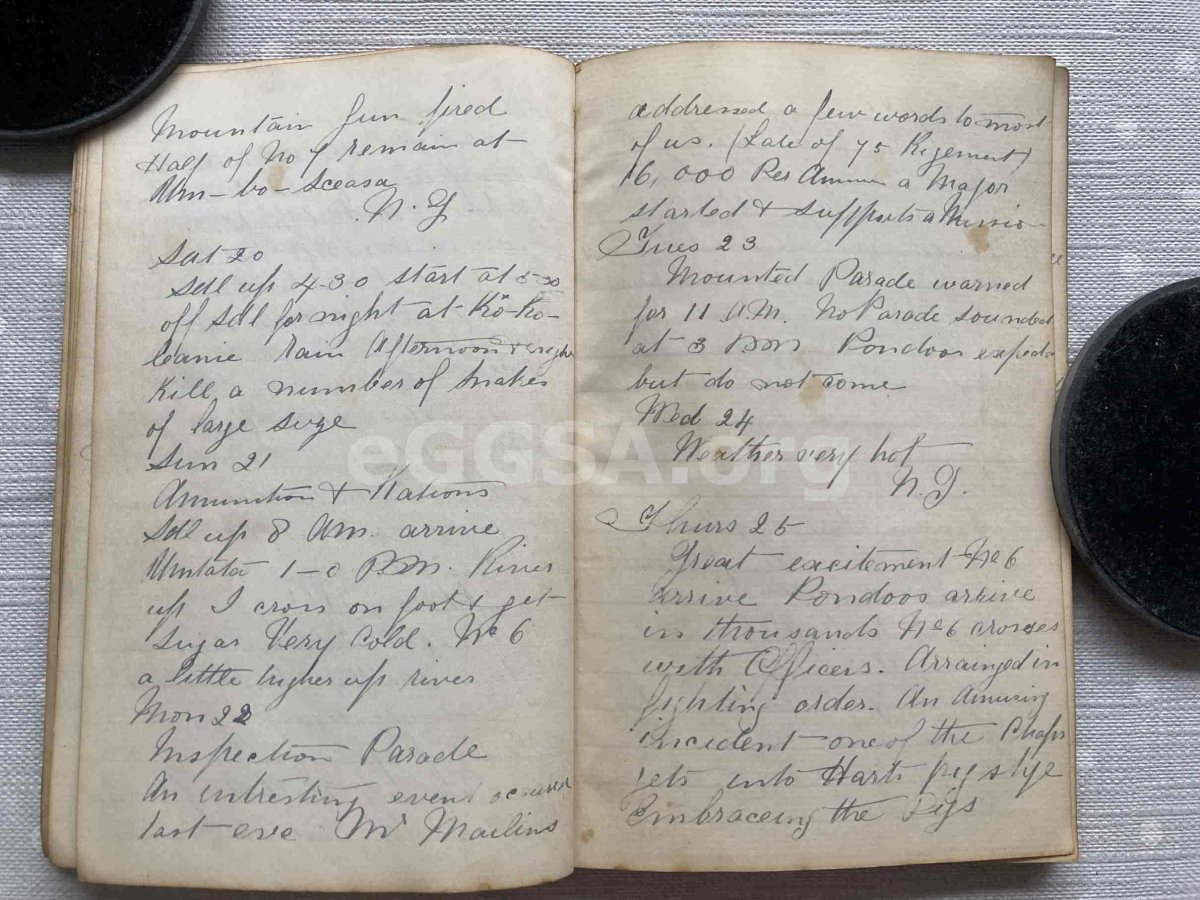 Mountain Gun fired
Half of No 7 remain at
Um-bo-Sceasa
N. G.
Sat 20
Sdl up 4-30 start at 5-30
off Sdl for night at Ko-Ko-
leanie Rain Afternoon &
Kill a number of Snakes
of large sizge
Sun 21
Ammunition & Rations
Sdl up 8 Am. arrive
Umtata 1-0 P.M. River
up I cross on foot & get
Sugar Very Cold. No 6
a little higher up river
Mon 22
Inspection Parade
An intresting event occured
last eve Mr Mailins
addressed a few words to most
of us. (Late of 75 Regement)
16,000 Per Annum a Major
started & supports a Mission
Tues 23
Mounted Parade warned
for 11 A.M. No Parade sounded
at 3 P.M. Pondoos expected
but do not come
Wed 24
Weather very hot
N. G.
Thurs 25
Great excitement No 6
arrive Pondoos arrive
in thousands No 6 crosses
with Officers. Arrainged in
fighting order. An Amusing
incident one of the Chaps
gets into Harts pig stye
Embraceing the Pigs
eGGSA.org